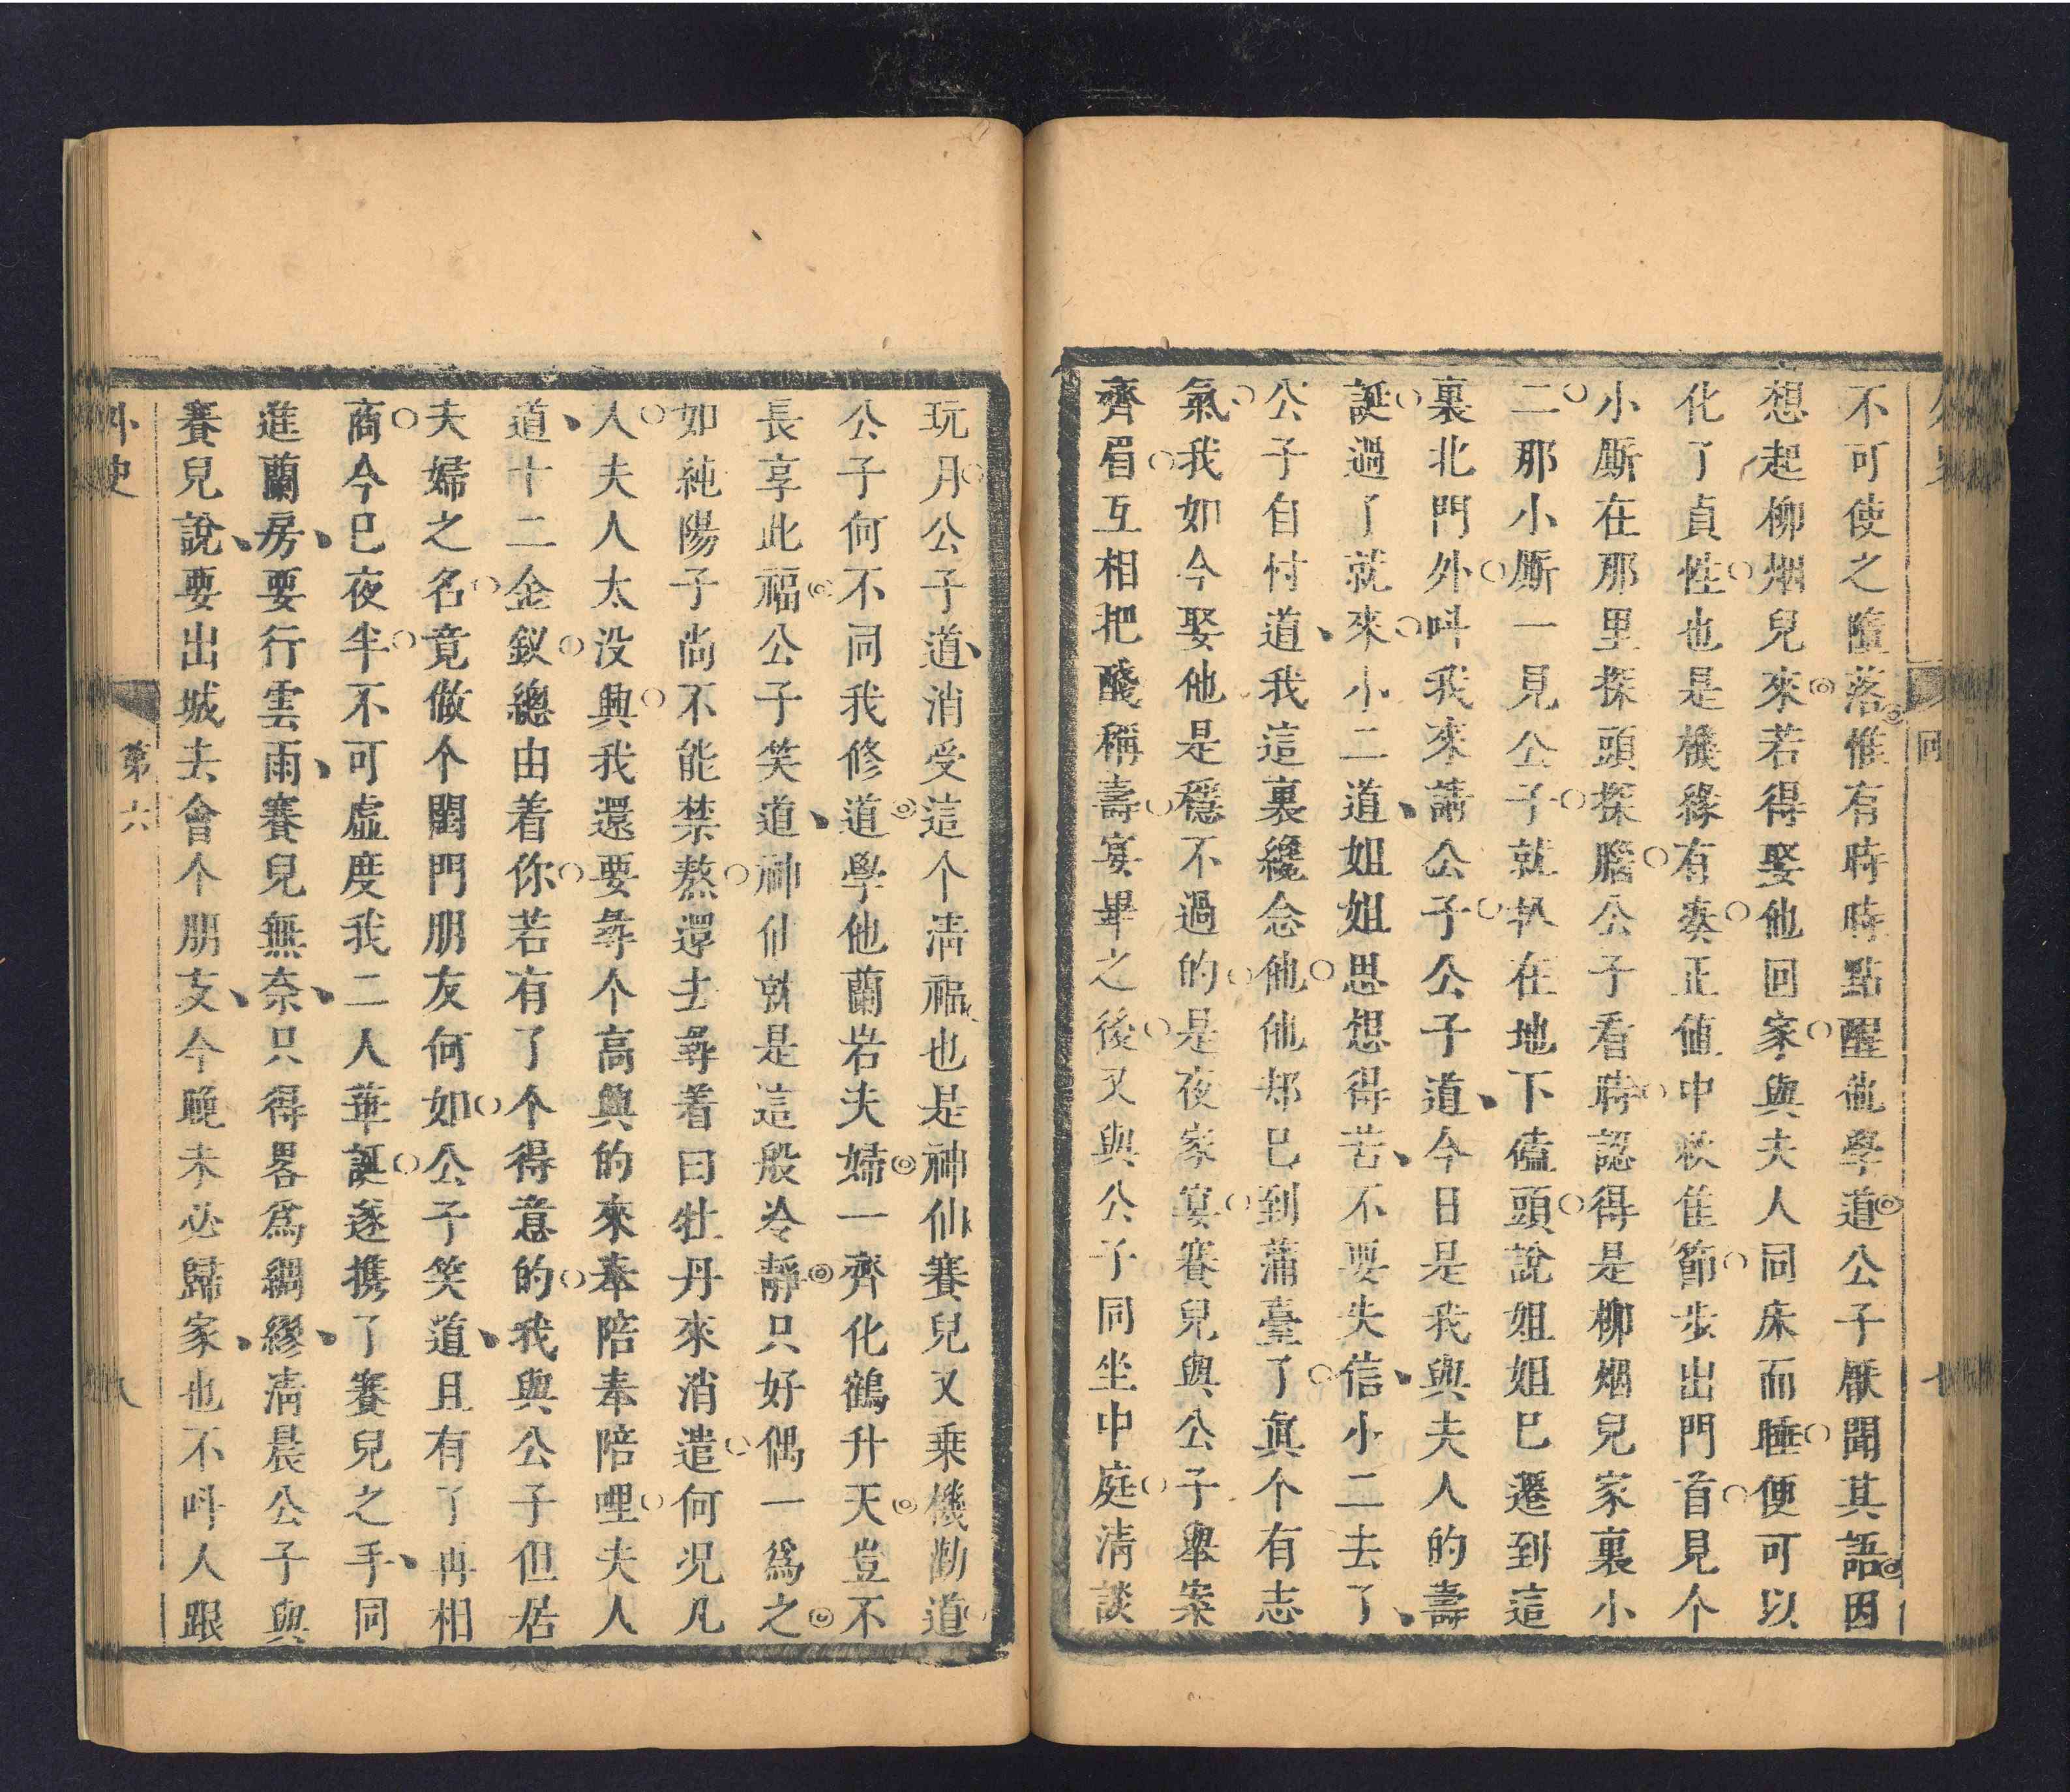 不可使之墮落惟有時時點醒他學道公子厭聞其語因
想起柳烟兒來若得娶他回家與夫人同床而睡便可以
化了貞性也是機緣有湊正値中秋佳節步出門首見个
小厮在那里探頭探腦公子看時認得是柳烟兒家裏小
二那小厮一見公子就扒在地下磕頭說姐姐巳遷到這
裏北門外呌我來請公子公子道今日是我與夫人的壽
誕過了就來小二道姐姐思想得苦不要失信小二去了
公子自忖道我這裏纔念他他却巳到蒲臺了眞个有志
氣我如今娶他是穩不過的是夜家宴賽兒與公子舉案
齊眉互相把醆稱壽宴畢之後又與公子同坐中庭清談
玩月公子道消受這个清福也是神仙賽兒又乗機勸道
公子何不同我修道學他蘭岩夫婦一齊化鶴升天豈不
長享此福公子笑道神仙就是這般冷靜只好偶一爲之
如純陽子尚不能禁熬還去尋着白牡丹來消遣何况凡
人夫人太没興我還要尋个高興的來奉陪奉陪哩夫人
道十二金釵總由着你若有了个得意的我與公子但居
夫婦之名竟做个閨門朋友何如公子笑道且有了再相
商今巳夜半不可虛度我二人華誕遂携了賽兒之手同
進蘭房要行雲雨賽兒無奈只得畧爲綢繆清晨公子與
賽兒說要出城去會个朋友今晚未必歸家也不呌人跟
外史
第六
八